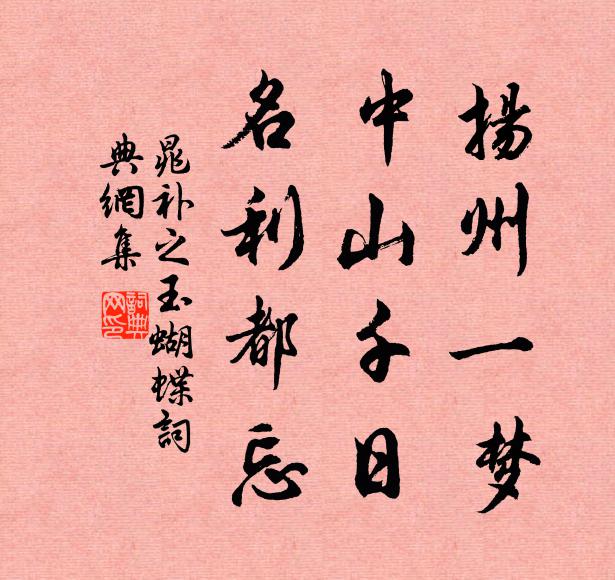 揚州一梦
中山千日
名利都忘
晁补之玉蝴蝶詞
典網集
詞典網印